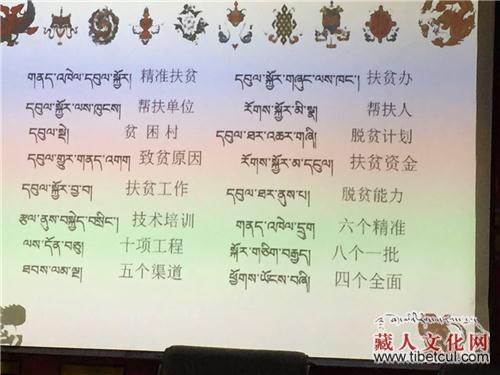 གནད་འཁེལ་དབུལ་སྐྱོར། 精准扶贫 དབུལ་སྐྱོར་གཞུང་ལས་ཁང་། 扶贫办
དབུལ་སྐྱོར་ལས་ཁུངས། 帮扶单位 རོགས་སྐྱོར་མི་སྣ། 帮扶人
དབུལ་སྡེ། 贫困村 དབུལ་ཐར་འཆར་གཞི། 脱贫计划
དབུལ་གྱུར་གནད་འགག 致贫原因 རོགས་སྐྱོར་མ་དངུལ། 扶贫资金
དབུལ་སྐྱོར་བྱ་བ། 扶贫工作 དབུལ་ཐར་ནུས་པ། 脱贫能力
རྩལ་ནུས་བསྐྱེད་བསྲིང་། 技术培训 གནད་འཁེལ་དྲུག 六个精准
ལས་དོན་བཅུ། 十项工程 སྐོར་གཅིག་བརྒྱད། 八个一批
ཐབས་ལམ་ལྔ། 五个渠道 ཕྱོགས་ཡོངས་བཞི། 四个全面
藏人文化网
www.tibetcul.com